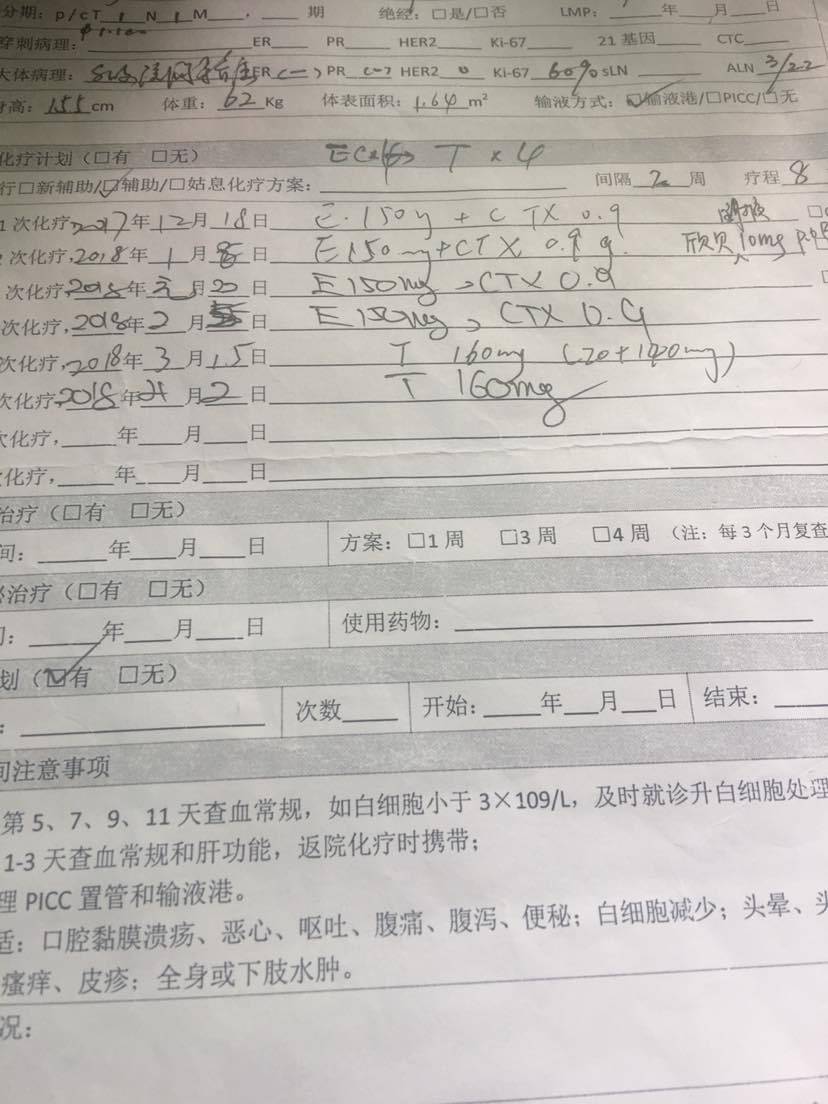 分期：p/cT 1 N 1 M 期 绝经：□是/□否 LMP： 年 月 日
穿刺病理： ER PR HER2 Ki-67 21基因 CTC
大体病理： ER (-) PR (-) HER2 0 Ki-67 60% SLN ALN 3/22
身高：155 cm 体重：62 Kg 体表面积：1.64 m² 输液方式：☑输液港/□PICC/□无
化疗计划（□有 □无） T×4
行□新辅助/☑辅助/□姑息化疗方案： 间隔 2 周 疗程 8
1 次化疗，2017年 12 月 18 日 E 150 + CTX 0.9
次化疗，2018年 1 月 日 E150mg+CTX 0.9 g 10mg
次化疗，2018年 月 20 日 E150mg CTX 0.9
次化疗，2018年 2 月 日 E 150mg, CTX 0.9
次化疗，2018年 3 月 15 日 T 160mg (20+140mg)
次化疗，2018年 4 月 2 日 T 160mg
次化疗， 年 月 日
次化疗， 年 月 日
治疗（□有 □无）
间： 年 月 日 方案：□1周 □3周 □4周 （注：每3个月复查
治疗（□有 □无）
： 年 月 日 使用药物：
划（☑有 □无）
： 次数 开始： 年 月 日 结束：
间注意事项
第 5、7、9、11 天查血常规，如白细胞小于 3×109/L，及时就诊升白细胞处理
1-3 天查血常规和肝功能，返院化疗时携带；
理 PICC 置管和输液港。
适：口腔黏膜溃疡、恶心、呕吐、腹痛、腹泻、便秘；白细胞减少；头晕、头
瘙痒、皮疹；全身或下肢水肿。
况：